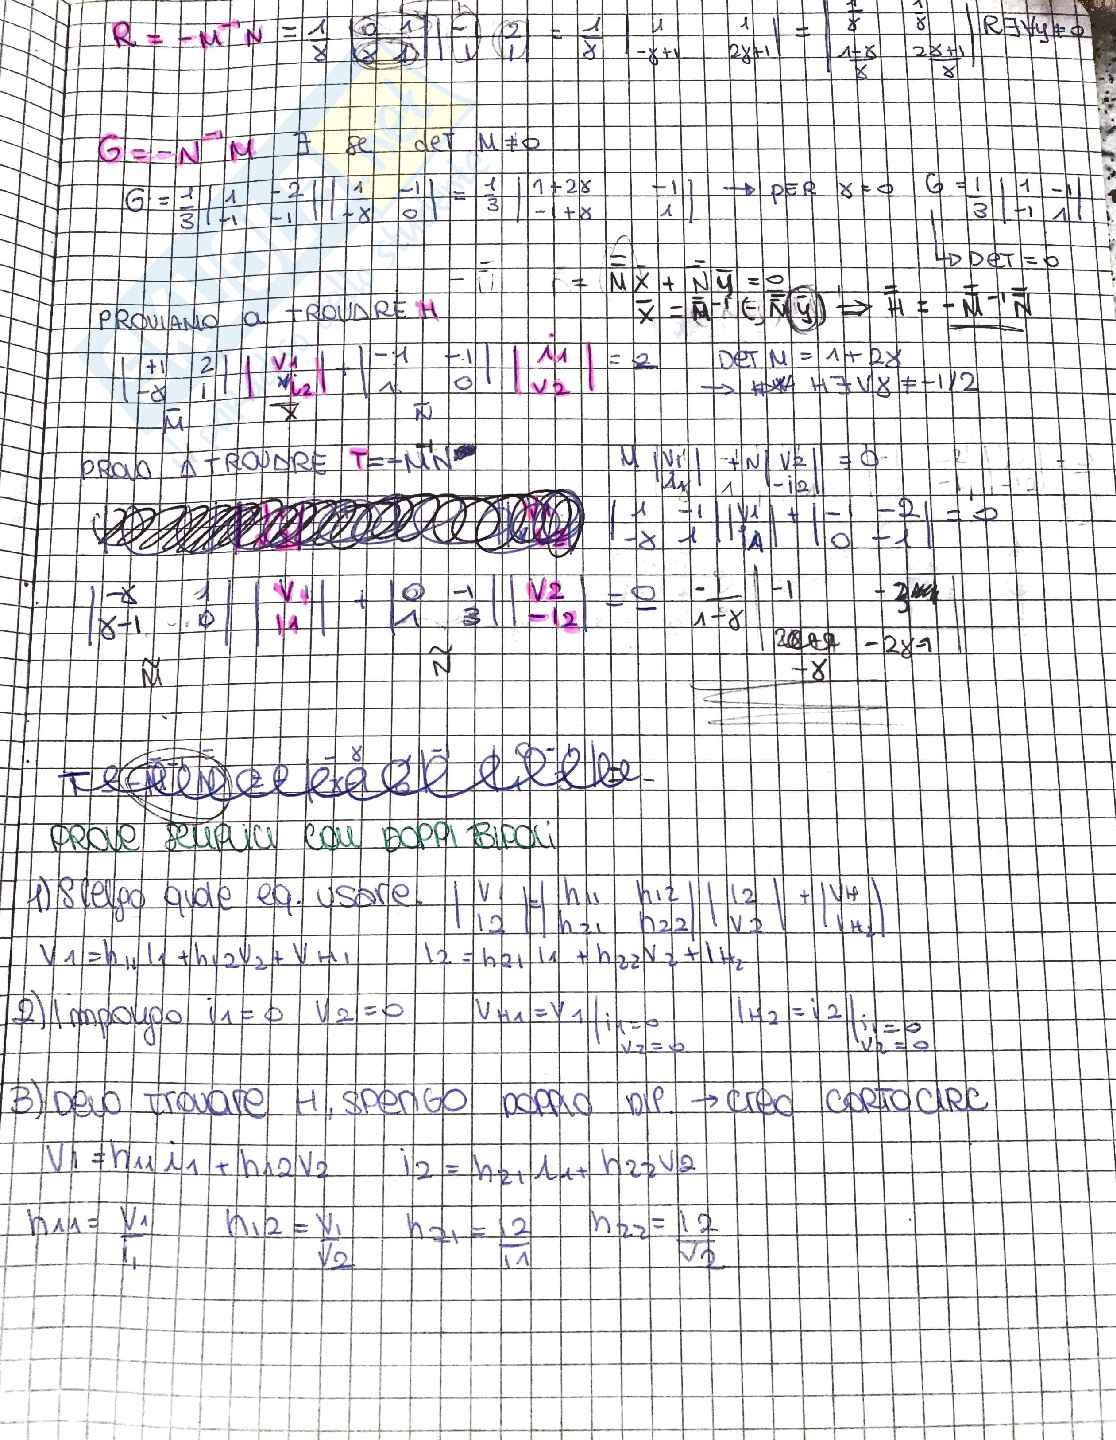 R = -M⁻¹N = 1/γ |0 1 / γ 1| |-1 2 / 1 1| = 1/γ |1 1 / -γ+1 2γ+1| = |1/γ 1/γ / 1-γ/γ 2γ+1/γ| R∃∀γ≠0
G = -N⁻¹M ∃ se det M≠0
G = 1/3 |1 -2 / -1 -1| |1 -1 / -γ 0| = 1/3 |1+2γ -1 / -1+γ 1| → PER γ=0 G = 1/3 |1 -1 / -1 1|
↳ DET = 0
M̿ X̄ + N̿ ȳ = 0
PROVIAMO a TROVARE H X̄ = M̿⁻¹(-N̿ ȳ) ⇒ H̿ = -M̿⁻¹N̿
|+1 2 / -γ 1| |V1 / i2| + |-1 -1 / 1 0| |i1 / V2| = 2 DET M = 1+2γ
→ H∃∀γ≠-1/2
M̄ X̄ N̄
PROVO A TROVARE T = -M⁻¹N M |V1 / i1| + N |V2 / -i2| = 0
|1 -1 / -γ 1| |V1 / 1| + |-1 -2 / 0 -1| = 0
|-γ 1 / γ-1 0| |V1 / I1| + |0 -1 / 1 3| |V2 / -I2| = 0 -1/1-γ |-1 -3 / -γ -2γ-1|
M̃ Ñ
PROVE SEMPLICI CON DOPPI BIPOLI
1) Scelgo quale eq. usare. |V1 / I2| = |h11 h12 / h21 h22| |I2 / V2| + |VH / VH2|
V1 = h11 I1 + h12V2 + VH1 I2 = h21 i1 + h22V2 + IH2
2) Impongo i1=0 V2=0 VH1 = V1 | i1=0 V2=0 IH2 = i2 | i1=0 V2=0
3) Devo trovare H, SPENGO DOPPIO DIP. → creo CORTO CIRC
V1 = h11 i1 + h12V2 i2 = h21 i1 + h22V2
h11 = V1/i1 h12 = V1/V2 h21 = I2/I1 h22 = I2/V2